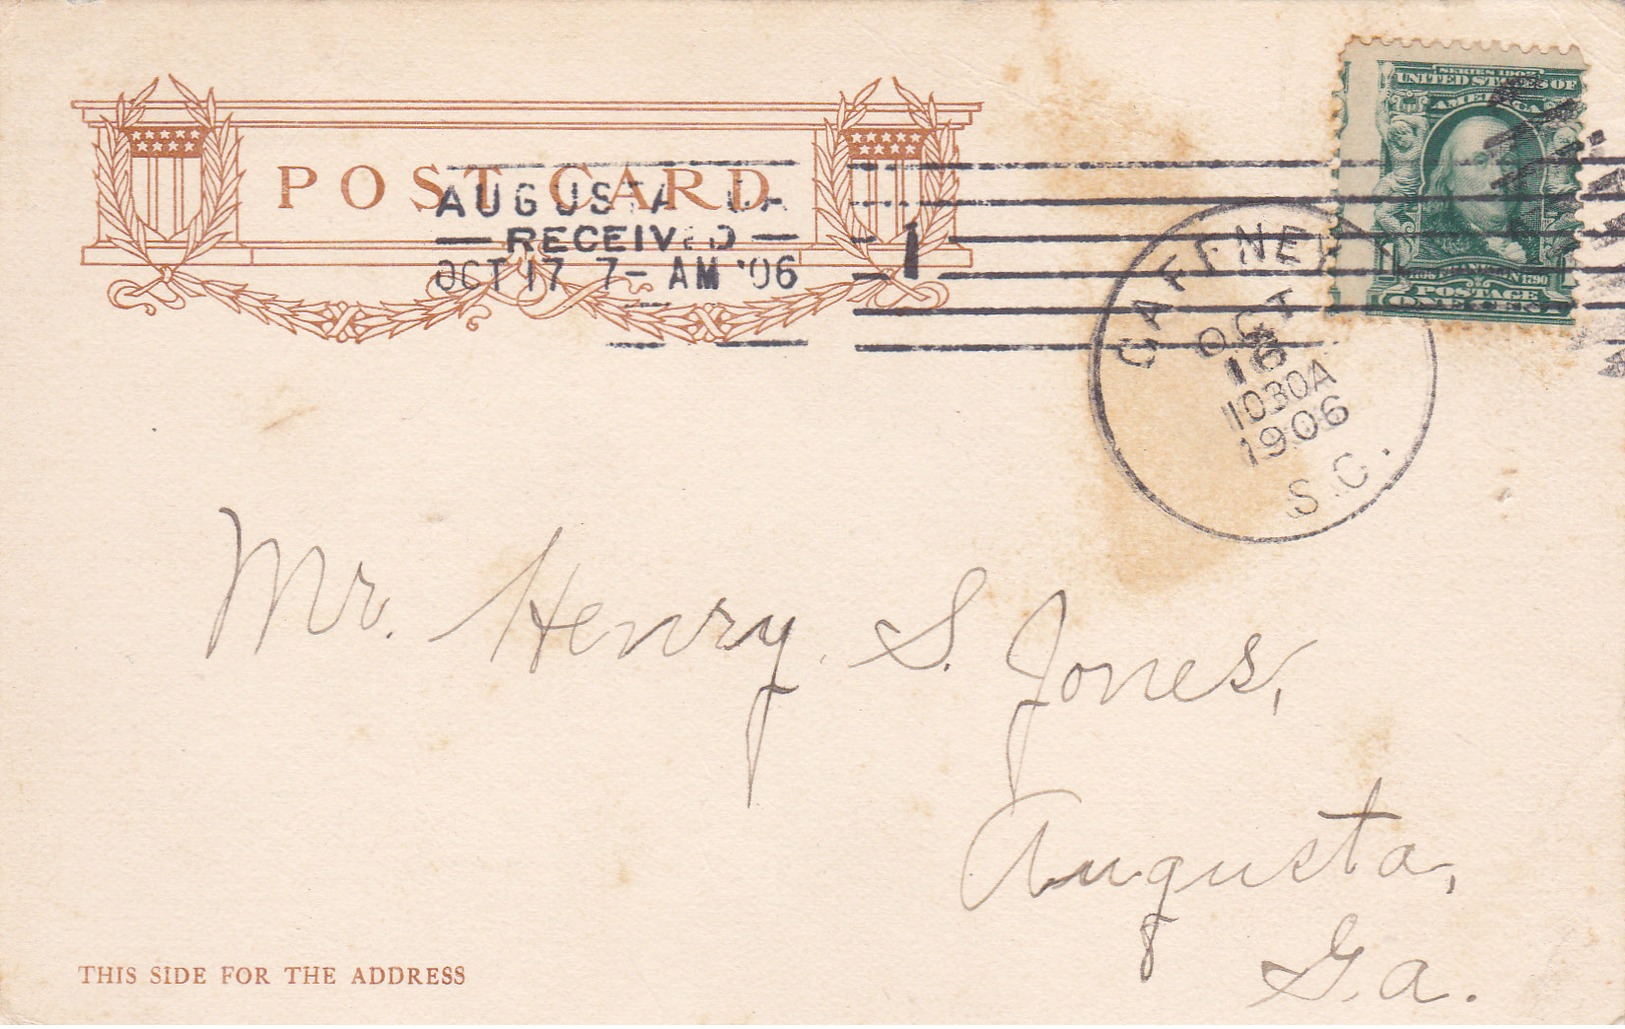 SERIES 1902
UNITED STATES OF
AMERICA
POST CARD
AUGUSTA GA
RECEIVED
OCT 17 7- AM '06
1
GAFFNEY
OCT
16
1030A
1906
S.C.
1706 FRANKLIN 1790
POSTAGE
ONE CENT
Mr. Henry S. Jones,
Augusta,
Ga.
THIS SIDE FOR THE ADDRESS